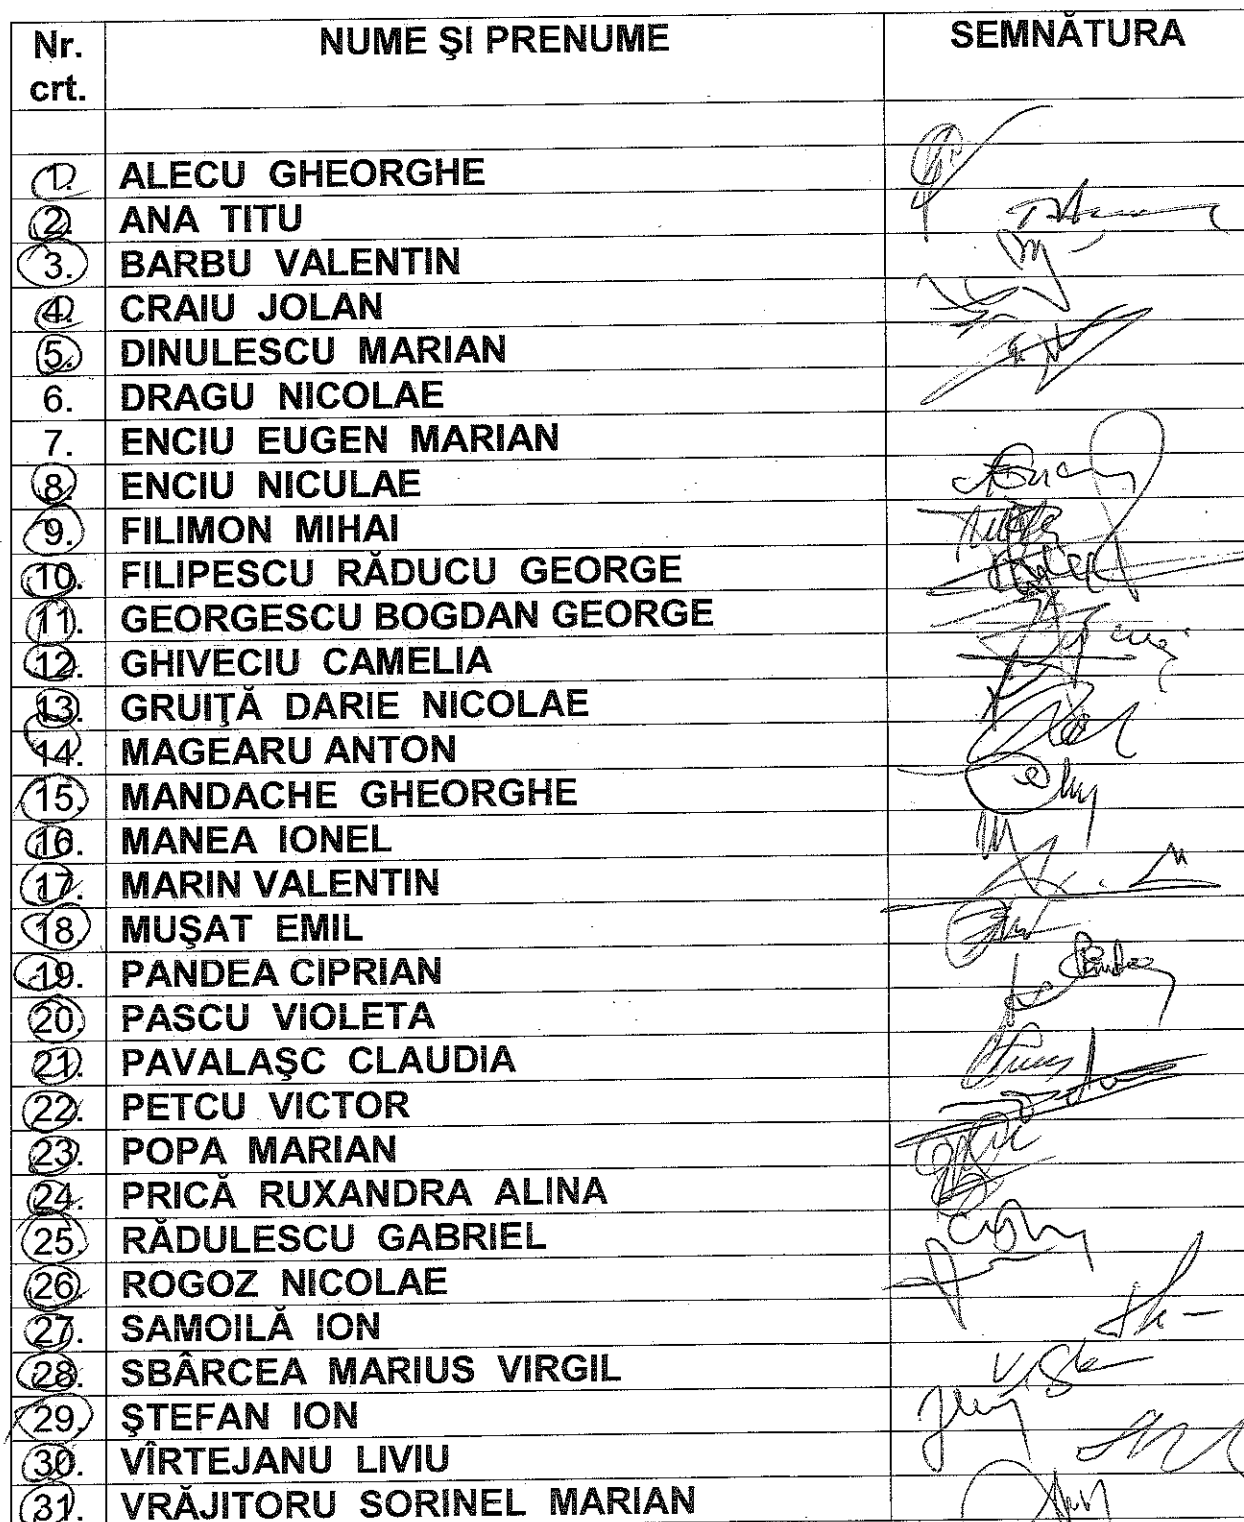 Nr. crt. NUME ŞI PRENUME SEMNĂTURA
1. ALECU GHEORGHE
2. ANA TITU
3. BARBU VALENTIN
4. CRAIU JOLAN
5. DINULESCU MARIAN
6. DRAGU NICOLAE
7. ENCIU EUGEN MARIAN
8. ENCIU NICULAE
9. FILIMON MIHAI
10. FILIPESCU RĂDUCU GEORGE
11. GEORGESCU BOGDAN GEORGE
12. GHIVECIU CAMELIA
13. GRUIŢĂ DARIE NICOLAE
14. MAGEARU ANTON
15. MANDACHE GHEORGHE
16. MANEA IONEL
17. MARIN VALENTIN
18. MUŞAT EMIL
19. PANDEA CIPRIAN
20. PASCU VIOLETA
21. PAVALAŞC CLAUDIA
22. PETCU VICTOR
23. POPA MARIAN
24. PRICĂ RUXANDRA ALINA
25. RĂDULESCU GABRIEL
26. ROGOZ NICOLAE
27. SAMOILĂ ION
28. SBÂRCEA MARIUS VIRGIL
29. ŞTEFAN ION
30. VÎRTEJANU LIVIU
31. VRĂJITORU SORINEL MARIAN